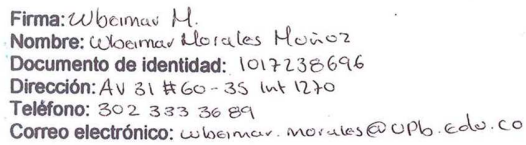 Firma: Wbeimar M.
Nombre: Wbeimar Morales Muñoz
Documento de identidad: 1017238696
Dirección: AV 31 #60-35 Int 1270
Teléfono: 302 333 36 89
Correo electrónico: wbeimar.morales@upb.edu.co